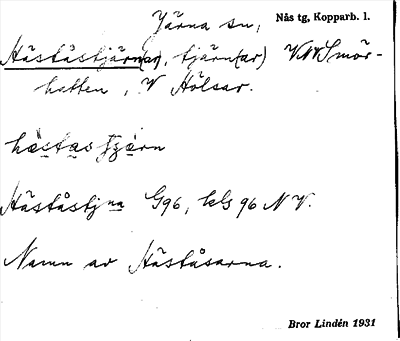 Järna sn, Nås tg, Kopparb. l.
Håståstjärn(ar), tjärn(ar) VNV Smör-
hatten, V Hölsar.
håstås tjärn
Håståstjna G96, kls 96 NV.
Namn av Håståsarna.
Bror Lindén 1931